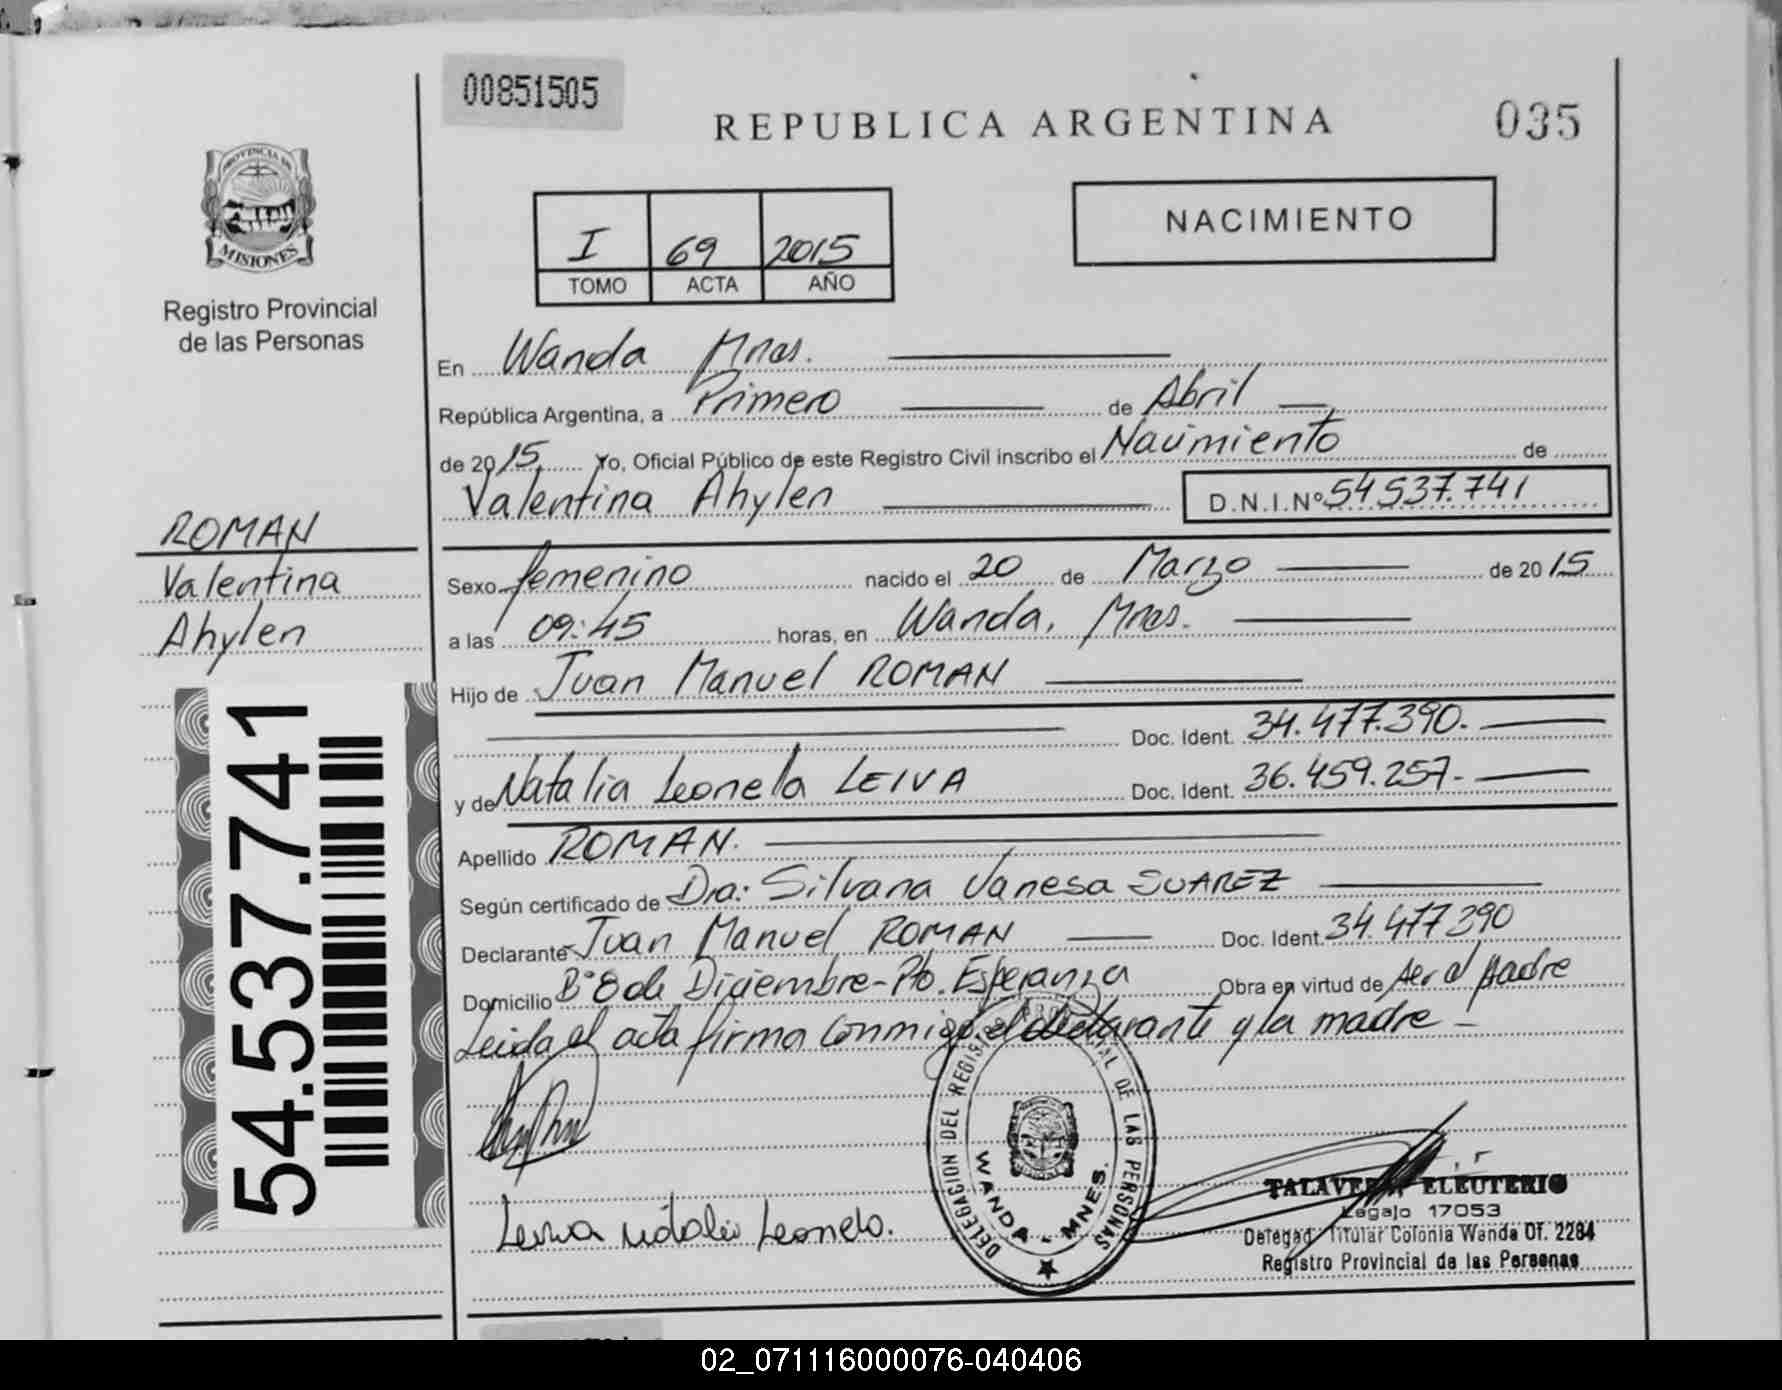 00851505
REPUBLICA ARGENTINA
035
PROVINCIA DE
MISIONES
Registro Provincial
de las Personas
I 69 2015
TOMO ACTA AÑO
NACIMIENTO
En Wanda Mnes.
República Argentina, a Primero de Abril
de 2015 Yo, Oficial Público de este Registro Civil inscribo el Nacimiento de
Valentina Ahylen D.N.I.Nº 54537.741
ROMAN
Valentina
Ahylen
54.537.741
Sexo femenino nacido el 20 de Marzo de 2015
a las 09:45 horas, en Wanda, Mnes.
Hijo de Juan Manuel ROMAN
Doc. Ident. 34.477.390.
y de Natalia Leonela LEIVA Doc. Ident. 36.459.257.
Apellido ROMAN.
Según certificado de Dra: Silvana Vanesa SUAREZ
Declarante Juan Manuel ROMAN Doc. Ident. 34.477390
Domicilio Bº 8 de Diciembre-Pto. Esperanza Obra en virtud de ser el padre
Leida el acta firma conmigo el declarante y la madre
Leiva Natalia Leonela.
DELEGACION DEL REGISTRO PROVINCIAL DE LAS PERSONAS
WANDA - MNES.
TALAVERA, ELEUTERIO
Legajo 17053
Delegado Titular Colonia Wanda Of. 2284
Registro Provincial de las Personas
02_071116000076-040406